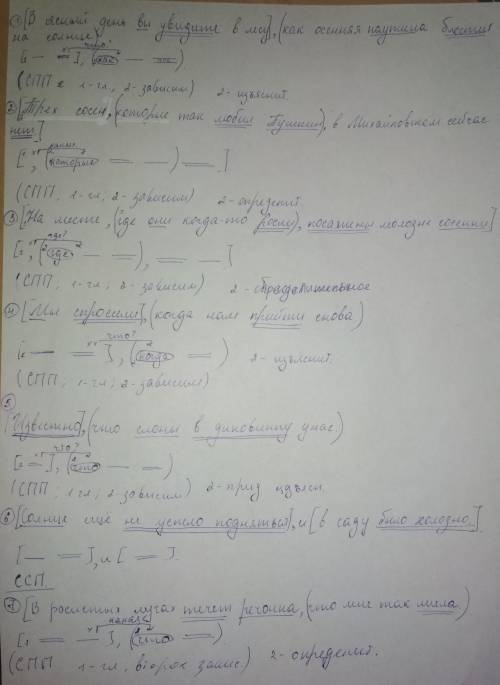 ① [В ясный день вы увидите в лесу], (как осенняя паутина блестит
на солнце)
что?
[1 — =], (как — =)
(СПП 1-гл, 2-зависим) 2-изъяснит.
② [Трех сосен, (которые так любил Пушкин), в Михайловском сейчас
нет]
каких
[1, (которые = —) =]
(СПП, 1-гл, 2-зависим) 2-определит.
③ [На месте, (где они когда-то росли), посажены молодые сосенки]
где?
[1, (2 где — =), = —]
(СПП; 1-гл; 2-зависим)
④ [Мы спросили], (когда нам прийти снова)
что?
[1 — =], (2 когда =) 2-изъяснит.
(СПП; 1-гл; 2-зависим)
⑤
[Известно], (что слоны в диковинку у нас)
что?
[1 =], (2 что — =)
(СПП; 1 гл; 2-зависим) 2-прид изъясн.
⑥ [Солнце ещё не успело подняться], и [в саду было холодно.]
[— =], и [=].
ССП
⑦ [В росистых лугах течет речонка, (что мне так мила)
какая
[1 = —], (2 что =)
(СПП 1-гл, второе завис.) 2-определит.